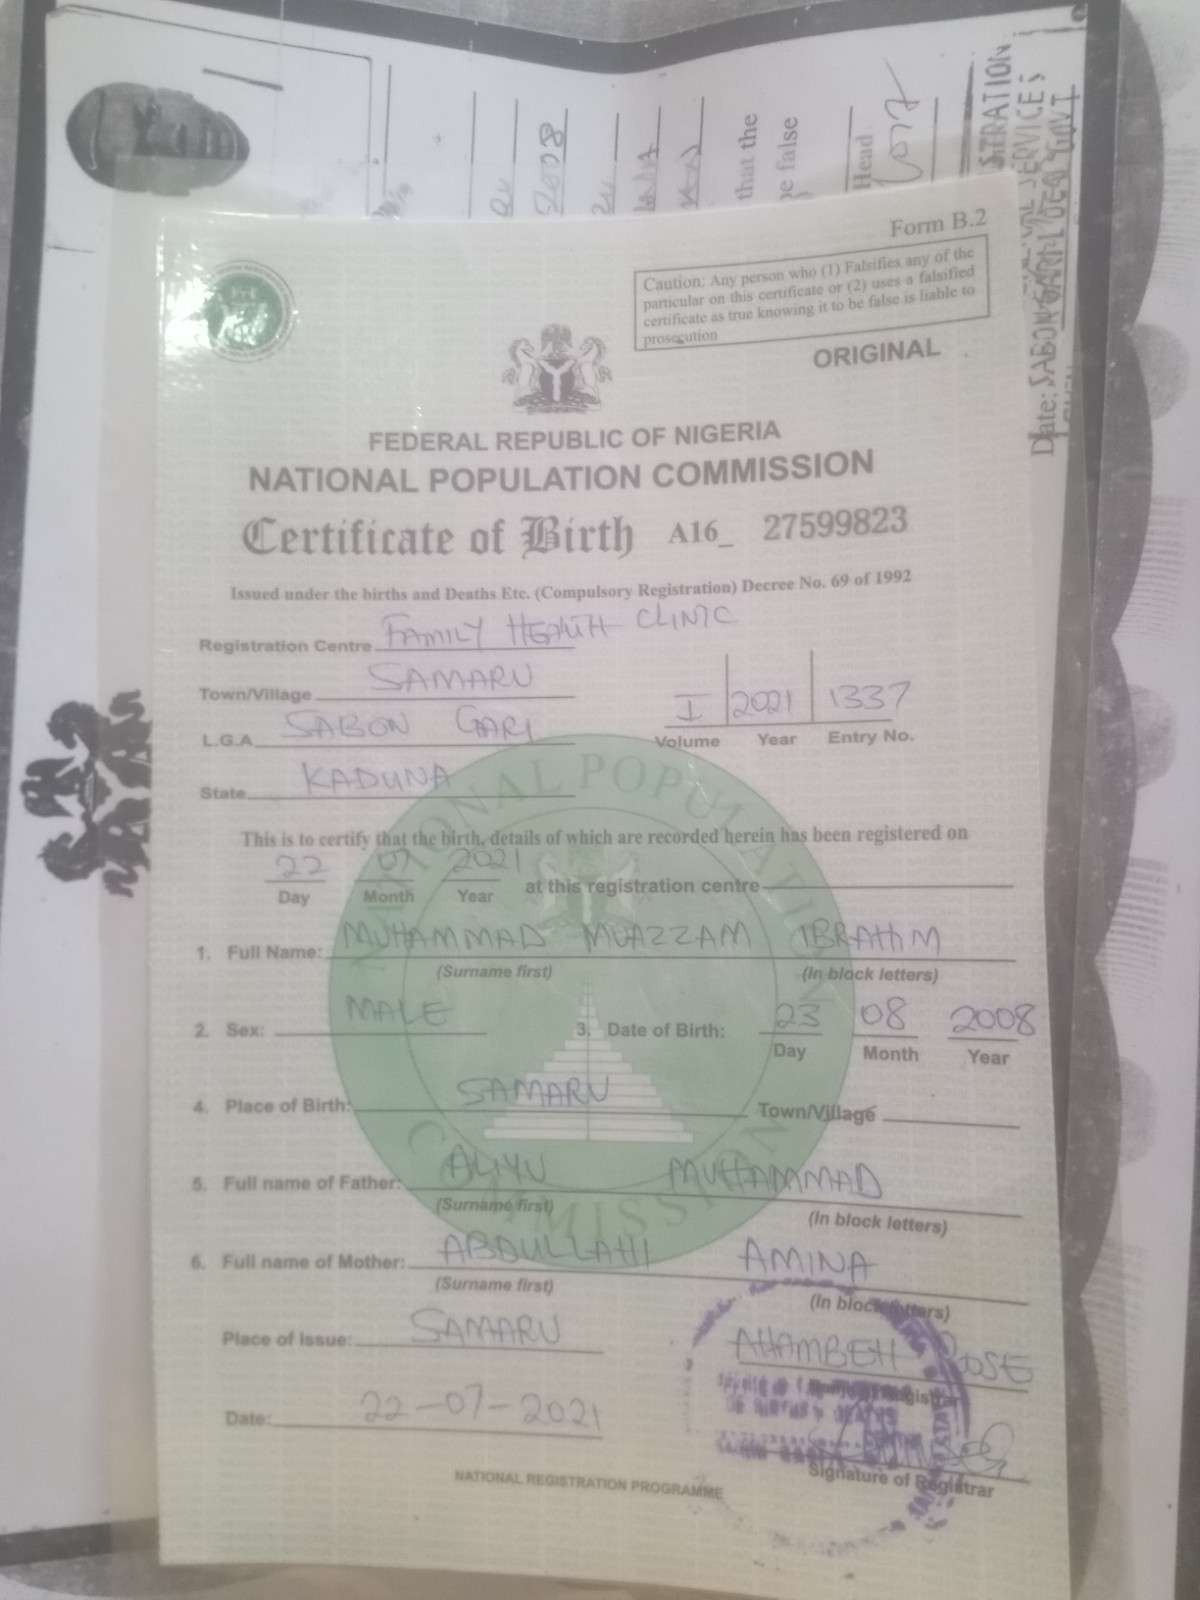 2008
that the
be false
Head
STRATION
SERVICES
Date: SABON GARI
Form B.2
Caution: Any person who (1) Falsifies any of the
particular on this certificate or (2) uses a falsified
certificate as true knowing it to be false is liable to
prosecution
ORIGINAL
FEDERAL REPUBLIC OF NIGERIA
NATIONAL POPULATION COMMISSION
Certificate of Birth A16_ 27599823
Issued under the births and Deaths Etc. (Compulsory Registration) Decree No. 69 of 1992
Registration Centre FAMILY HEALTH CLINIC
Town/Village SAMARU
L.G.A SABON GARI
I 2021 1337
Volume Year Entry No.
State KADUNA
This is to certify that the birth, details of which are recorded herein has been registered on
22 07 2021
Day Month Year at this registration centre
1. Full Name: MUHAMMAD MUAZZAM IBRAHIM
(Surname first) (In block letters)
2. Sex: MALE 3. Date of Birth: 23 08 2008
Day Month Year
4. Place of Birth: SAMARU Town/Village
5. Full name of Father: ALIYU MUHAMMAD
(Surname first) (In block letters)
6. Full name of Mother: ABDULLAHI AMINA
(Surname first) (In block letters)
Place of Issue: SAMARU
AHAMBEH ROSE
Date: 22-07-2021
Signature of Registrar
NATIONAL REGISTRATION PROGRAMME
NATIONAL POPULATION COMMISSION